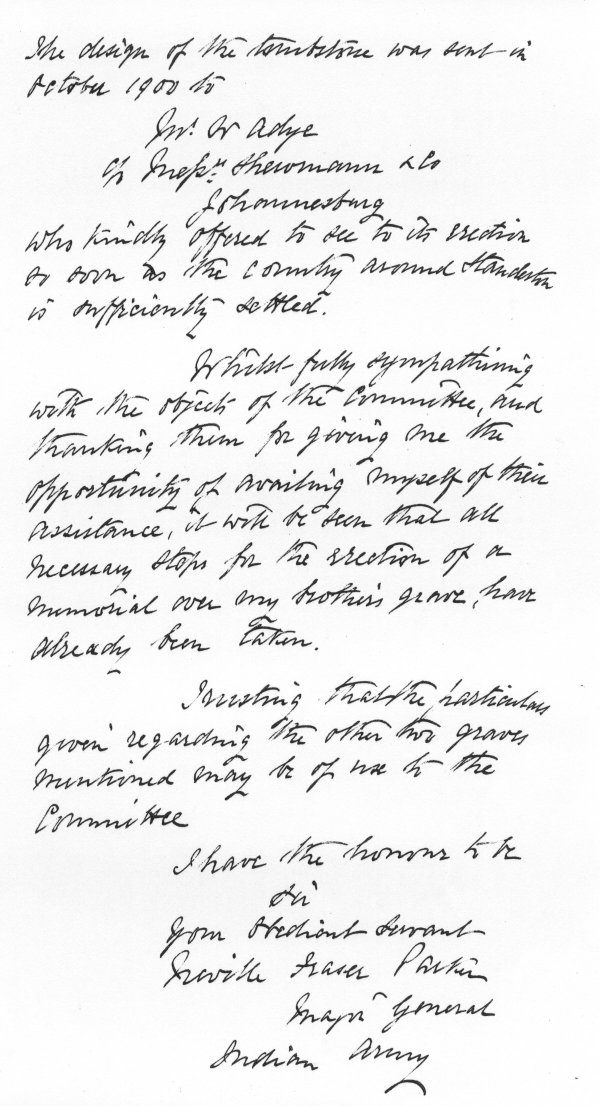 The design of the tombstone was sent in
October 1900 to
Mr. W Adye
c/o Messrs. Shewmann & Co
Johannesburg
who kindly offered to see to its erection
so soon as the country around Standerton
is sufficiently settled.
Whilst fully sympathising
with the objects of the Committee, and
thanking them for giving me the
opportunity of availing myself of their
assistance, it will be seen that all
necessary steps for the erection of a
memorial over my brother's grave, have
already been taken.
Trusting that the particulars
given regarding the other two graves
mentioned may be of use to the
Committee
I have the honour to be
Sir
Your obedient servant
Neville Fraser Parker
Major General
Indian Army